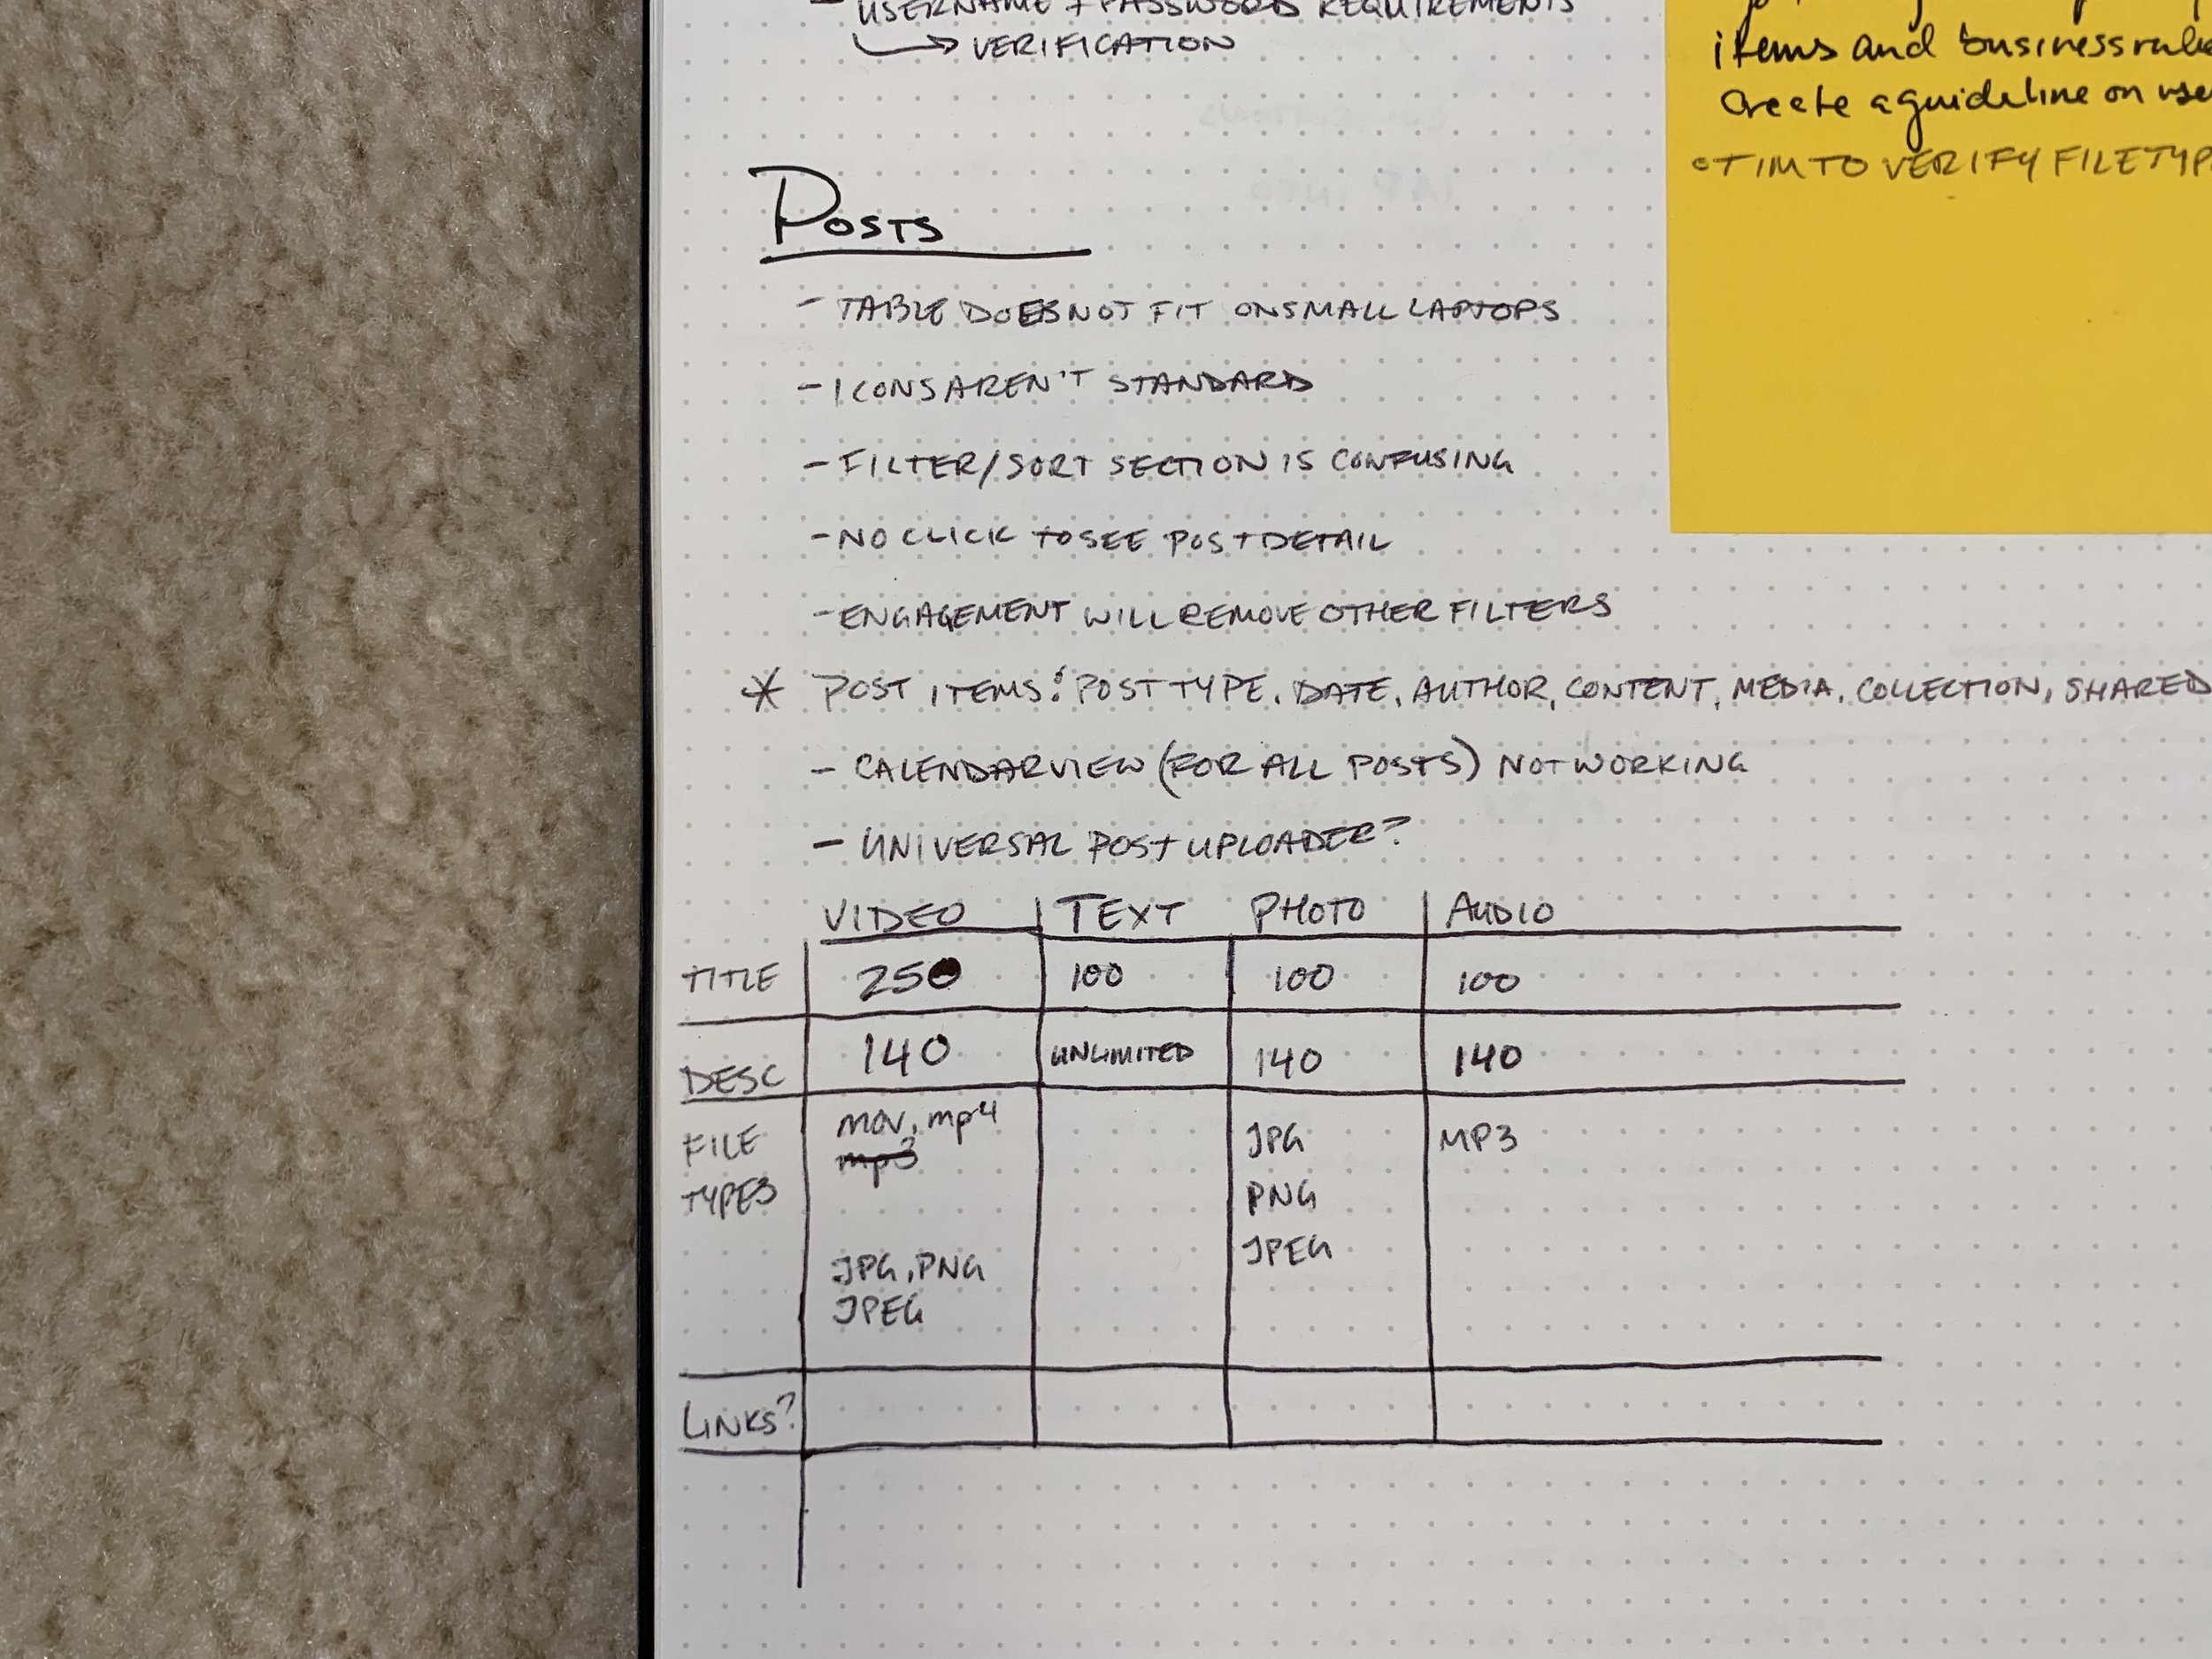 - USERNAME + PASSWORD REQUIREMENTS
→ VERIFICATION
items and business
Create a guideline on
○ TIM TO VERIFY
POSTS
- TABLE DOES NOT FIT ON SMALL LAPTOPS
- ICONS AREN'T STANDARD
- FILTER/SORT SECTION IS CONFUSING
- NO CLICK TO SEE POST DETAIL
- ENGAGEMENT WILL REMOVE OTHER FILTERS
* POST ITEMS: POST TYPE, DATE, AUTHOR, CONTENT, MEDIA, COLLECTION, SHARED
- CALENDAR VIEW (FOR ALL POSTS) NOT WORKING
- UNIVERSAL POST UPLOADER?
VIDEO TEXT PHOTO AUDIO
TITLE 250 100 100 100
DESC 140 UNLIMITED 140 140
FILE mov, mp4 JPG MP3
mp3
TYPES PNG
JPG, PNG JPEG
JPEG
LINKS?